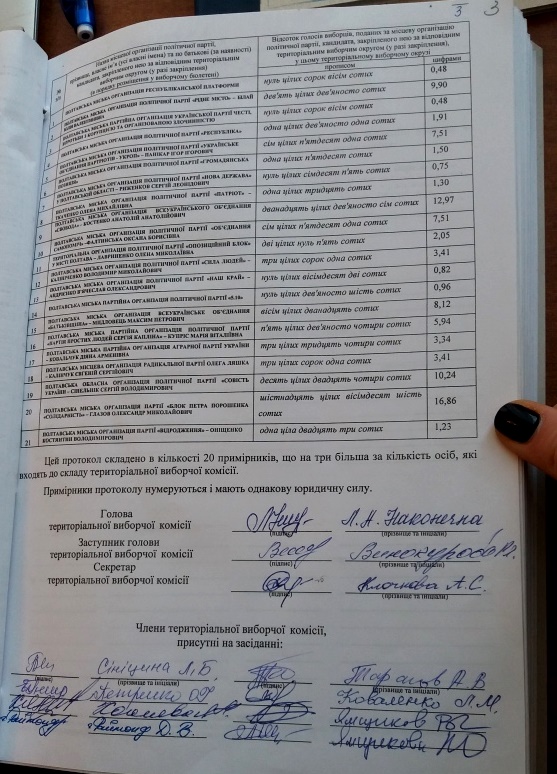 3 3
№ з/п
Назва місцевої організації політичної партії,
прізвище, власне ім'я (усі власні імена) та по батькові (за наявності)
кандидата, закріпленого нею за відповідним територіальним
виборчим округом (у разі закріплення)
(в порядку розміщення у виборчому бюлетені)
Відсоток голосів виборців, поданих за місцеву організацію
політичної партії, кандидата, закріпленого нею за відповідним
територіальним виборчим округом (у разі закріплення),
у цьому територіальному виборчому окрузі
прописом цифрами
ПОЛТАВСЬКА МІСЬКА ОРГАНІЗАЦІЯ РЕСПУБЛІКАНСЬКОЇ ПЛАТФОРМИ нуль цілих сорок вісім сотих 0,48
ПОЛТАВСЬКА МІСЬКА ОРГАНІЗАЦІЯ ПОЛІТИЧНОЇ ПАРТІЇ «РІДНЕ МІСТО» – дев'ять цілих дев'яносто сотих 9,90
ПОЛТАВСЬКА МІСЬКА ПАРТІЙНА ОРГАНІЗАЦІЯ УКРАЇНСЬКОЇ ПАРТІЇ ЧЕСТІ,
БОРОТЬБИ З КОРУПЦІЄЮ ТА ОРГАНІЗОВАНОЮ ЗЛОЧИННІСТЮ нуль цілих сорок вісім сотих 0,48
ПОЛТАВСЬКА МІСЬКА ОРГАНІЗАЦІЯ ПОЛІТИЧНОЇ ПАРТІЇ «РЕСПУБЛІКА» одна ціла дев'яносто одна сотих 1,91
ПОЛТАВСЬКА МІСЬКА ОРГАНІЗАЦІЯ ПОЛІТИЧНОЇ ПАРТІЇ «УКРАЇНСЬКЕ
ОБ'ЄДНАННЯ ПАТРІОТІВ – УКРОП» – ІГОР ІГОРОВИЧ сім цілих п'ятдесят одна сотих 7,51
ПОЛТАВСЬКА МІСЬКА ОРГАНІЗАЦІЯ ПОЛІТИЧНОЇ ПАРТІЇ «ГРОМАДЯНСЬКА
ПОЗИЦІЯ» одна ціла п'ятдесят сотих 1,50
ПОЛІТИЧНОЇ ПАРТІЇ «НОВА ДЕРЖАВА»
У ПОЛТАВСЬКІЙ ОБЛАСТІ – СЕРГЕЙ ЛЕОНІДОВИЧ нуль цілих сімдесят п'ять сотих 0,75
ПОЛТАВСЬКА МІСЬКА ОРГАНІЗАЦІЯ ПОЛІТИЧНОЇ ПАРТІЇ «ПАТРІОТ» –
ТКАЧЕНКО ОЛЕНА МИХАЙЛІВНА одна ціла тридцять сотих 1,30
ПОЛТАВСЬКА МІСЬКА ОРГАНІЗАЦІЯ ВСЕУКРАЇНСЬКОГО ОБ'ЄДНАННЯ
«СВОБОДА» – КОСТЕНКО АНАТОЛІЙ АНАТОЛІЙОВИЧ дванадцять цілих дев'яносто сім сотих 12,97
9 ПОЛТАВСЬКА МІСЬКА ОРГАНІЗАЦІЯ ПОЛІТИЧНОЇ ПАРТІЇ «ОБ'ЄДНАННЯ
САМОПОМІЧ» – ОКСАНА БОРИСІВНА сім цілих п'ятдесят одна сотих 7,51
10 ТЕРИТОРІАЛЬНА ОРГАНІЗАЦІЯ ПОЛІТИЧНОЇ ПАРТІЇ «ОПОЗИЦІЙНИЙ БЛОК»
У МІСТІ ПОЛТАВА – ЛАВРИНЕНКО ОЛЕНА МИКОЛАЇВНА дві цілих нуль п'ять сотих 2,05
11 ПОЛТАВСЬКА МІСЬКА ОРГАНІЗАЦІЯ ПОЛІТИЧНОЇ ПАРТІЇ «СИЛА ЛЮДЕЙ» –
ВОЛОДИМИР МИКОЛАЙОВИЧ три цілих сорок одна сотих 3,41
12 ПОЛТАВСЬКА МІСЬКА ОРГАНІЗАЦІЯ ПОЛІТИЧНОЇ ПАРТІЇ «НАШ КРАЙ» –
АНДРІЄНКО В'ЯЧЕСЛАВ ОЛЕКСАНДРОВИЧ нуль цілих вісімдесят дві сотих 0,82
13 ПОЛТАВСЬКА МІСЬКА ПАРТІЙНА ОРГАНІЗАЦІЯ ПОЛІТИЧНОЇ ПАРТІЇ «5.10» нуль цілих дев'яносто шість сотих 0,96
14 ПОЛТАВСЬКА МІСЬКА ОРГАНІЗАЦІЯ ВСЕУКРАЇНСЬКЕ ОБ'ЄДНАННЯ
«БАТЬКІВЩИНА» – МАКСИМ ПЕТРОВИЧ вісім цілих дванадцять сотих 8,12
15 ПОЛТАВСЬКА МІСЬКА ПАРТІЙНА ОРГАНІЗАЦІЯ ПОЛІТИЧНОЇ ПАРТІЇ
«ПАРТІЯ ПРОСТИХ ЛЮДЕЙ СЕРГІЯ КАПЛІНА» – КУПРІС МАРІЯ ВІТАЛІЇВНА п'ять цілих дев'яносто чотири сотих 5,94
16 ПОЛТАВСЬКА МІСЬКА ПАРТІЙНА ОРГАНІЗАЦІЯ АГРАРНОЇ ПАРТІЇ УКРАЇНИ
– КОВАЛЬЧУК ДІЯНА АРМЕНІВНА три цілих тридцять чотири сотих 3,34
17 ПОЛТАВСЬКА МІСЦЕВА ОРГАНІЗАЦІЯ РАДИКАЛЬНОЇ ПАРТІЇ ОЛЕГА ЛЯШКА
– КАЛІНЧУК ЄВГЕНІЙ СЕРГІЙОВИЧ три цілих сорок одна сотих 3,41
18
19 ПОЛТАВСЬКА ОБЛАСНА ОРГАНІЗАЦІЯ ПОЛІТИЧНОЇ ПАРТІЇ «СОВІСТЬ
УКРАЇНИ» – СЕРГІЙ ВОЛОДИМИРОВИЧ десять цілих двадцять чотири сотих 10,24
20 ПОЛТАВСЬКА МІСЬКА ОРГАНІЗАЦІЯ ПАРТІЇ «БЛОК ПЕТРА ПОРОШЕНКА
«СОЛІДАРНІСТЬ» – ГЛАЗОВ ОЛЕКСАНДР МИКОЛАЙОВИЧ шістнадцять цілих вісімдесят шість сотих 16,86
21 ПОЛТАВСЬКА МІСЬКА ОРГАНІЗАЦІЯ ПАРТІЇ «ВІДРОДЖЕННЯ» – ОНІЩЕНКО
КОСТЯНТИН ВОЛОДИМИРОВИЧ одна ціла двадцять три сотих 1,23
Цей протокол складено в кількості 20 примірників, що на три більша за кількість осіб, які
входять до складу територіальної виборчої комісії.
Примірники протоколу нумеруються і мають однакову юридичну силу.
Голова
територіальної виборчої комісії Л.Н. Наконечна
(підпис) (прізвище та ініціали)
Заступник голови
територіальної виборчої комісії
(підпис) (прізвище та ініціали)
Секретар
територіальної виборчої комісії А.С.
(підпис) (прізвище та ініціали)
Члени територіальної виборчої комісії,
присутні на засіданні:
Сініцина Л.Б.
(підпис) (прізвище та ініціали) (підпис) (прізвище та ініціали)
Коваленко Л.М.
Д.В.